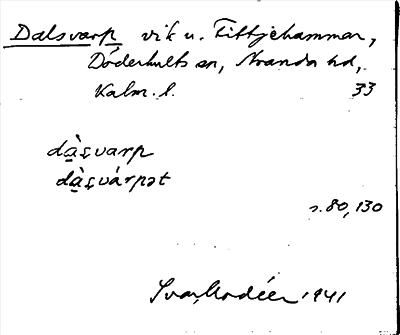 Dalsvarp vik u. Fittjehammar,
Döderhults sn, Stranda hd,
Kalm. l. 33
dàṣvarp
dàṣvárpət
s. 80, 130
Ivar Modéer 1941